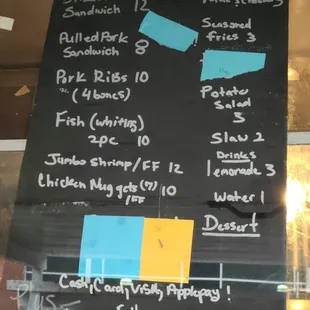 Sandwich 12
Pulled Pork
Sandwich 8
Pork Ribs 10
(4 bones)
Fish (whiting)
2pc 10
Jumbo shrimp/FF 12
Chicken Nuggets (7) 10
/FF
Seasoned
fries 3
Potato
Salad
3
Slaw 2
Drinks
lemonade 3
Water 1
Dessert
Cash, Card, Visa, Applepay!